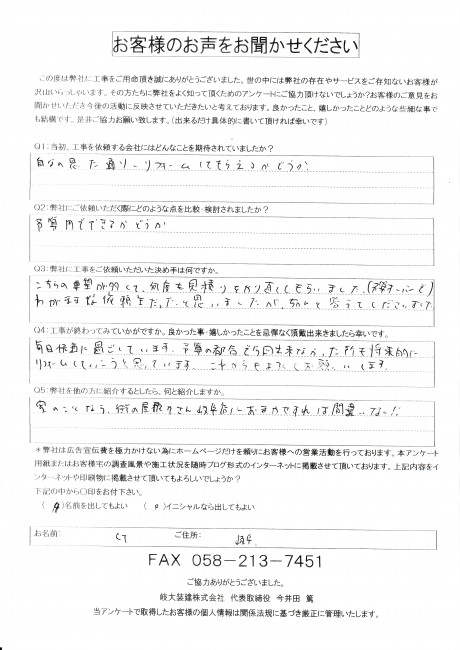 お客様のお声をお聞かせください
この度は弊社に工事をご用命頂き誠にありがとうございました。世の中には弊社の存在やサービスをご存知ないお客様が
沢山いらっしゃいます。その方たちに弊社をよく知って頂くためのアンケートにご協力頂けないでしょうか?お客様のご意見をお
聞かせいただき今後の活動に反映させていただきたいと考えております。良かったこと、嬉しかったことどのような些細な事で
も結構です。是非ご協力お願い致します。(出来るだけ具体的に書いて頂ければ幸いです)
Q1:当初、工事を依頼する会社にはどんなことを期待されていましたか?
自分の思った通りリフォームしてもらえるかどうか
Q2:弊社にご依頼いただく際にどのような点を比較・検討されましたか?
予算内でできるかどうか
Q3:弊社に工事をご依頼いただいた決め手は何ですか。
こちらの要望が多くて、何度も見積りをやり直してもらいました。(予算オーバーで)
わがままな依頼主だったと思いましたが、
Q4:工事が終わってみていかがですか。良かった事・嬉しかったことを忌憚なく頂戴出来きましたら幸いです。
毎日快適に過ごしています。予算の都合で今回出来なかった所も将来的に
リフォームしていこうと思っています。これからもよろしくお願いします。
Q5:弊社を他の方に紹介するとしたら、何と紹介しますか。
家のことなら、街の屋根やさん岐阜店におまかせすれば間違いなし!!
*弊社は広告宣伝費を極力かけない為にホームページだけを頼りにお客様への営業活動を行っております。本アンケート
用紙またはお客様宅の調査風景や施工状況を随時ブログ形式のインターネットに掲載させて頂いております。上記内容をイ
ンターネットや印刷物に掲載させて頂いてもよろしいでしょうか?
下記の中から〇印をお付下さい。
( )名前を出してもよい ( )イニシャルなら出してもよい
お名前: ご住所: 岐阜
FAX 058-213-7451
ご協力ありがとうございました。
岐大装建株式会社 代表取締役 今井田 篤
当アンケートで取得したお客様の個人情報は関係法規に基づき厳正に管理いたします。